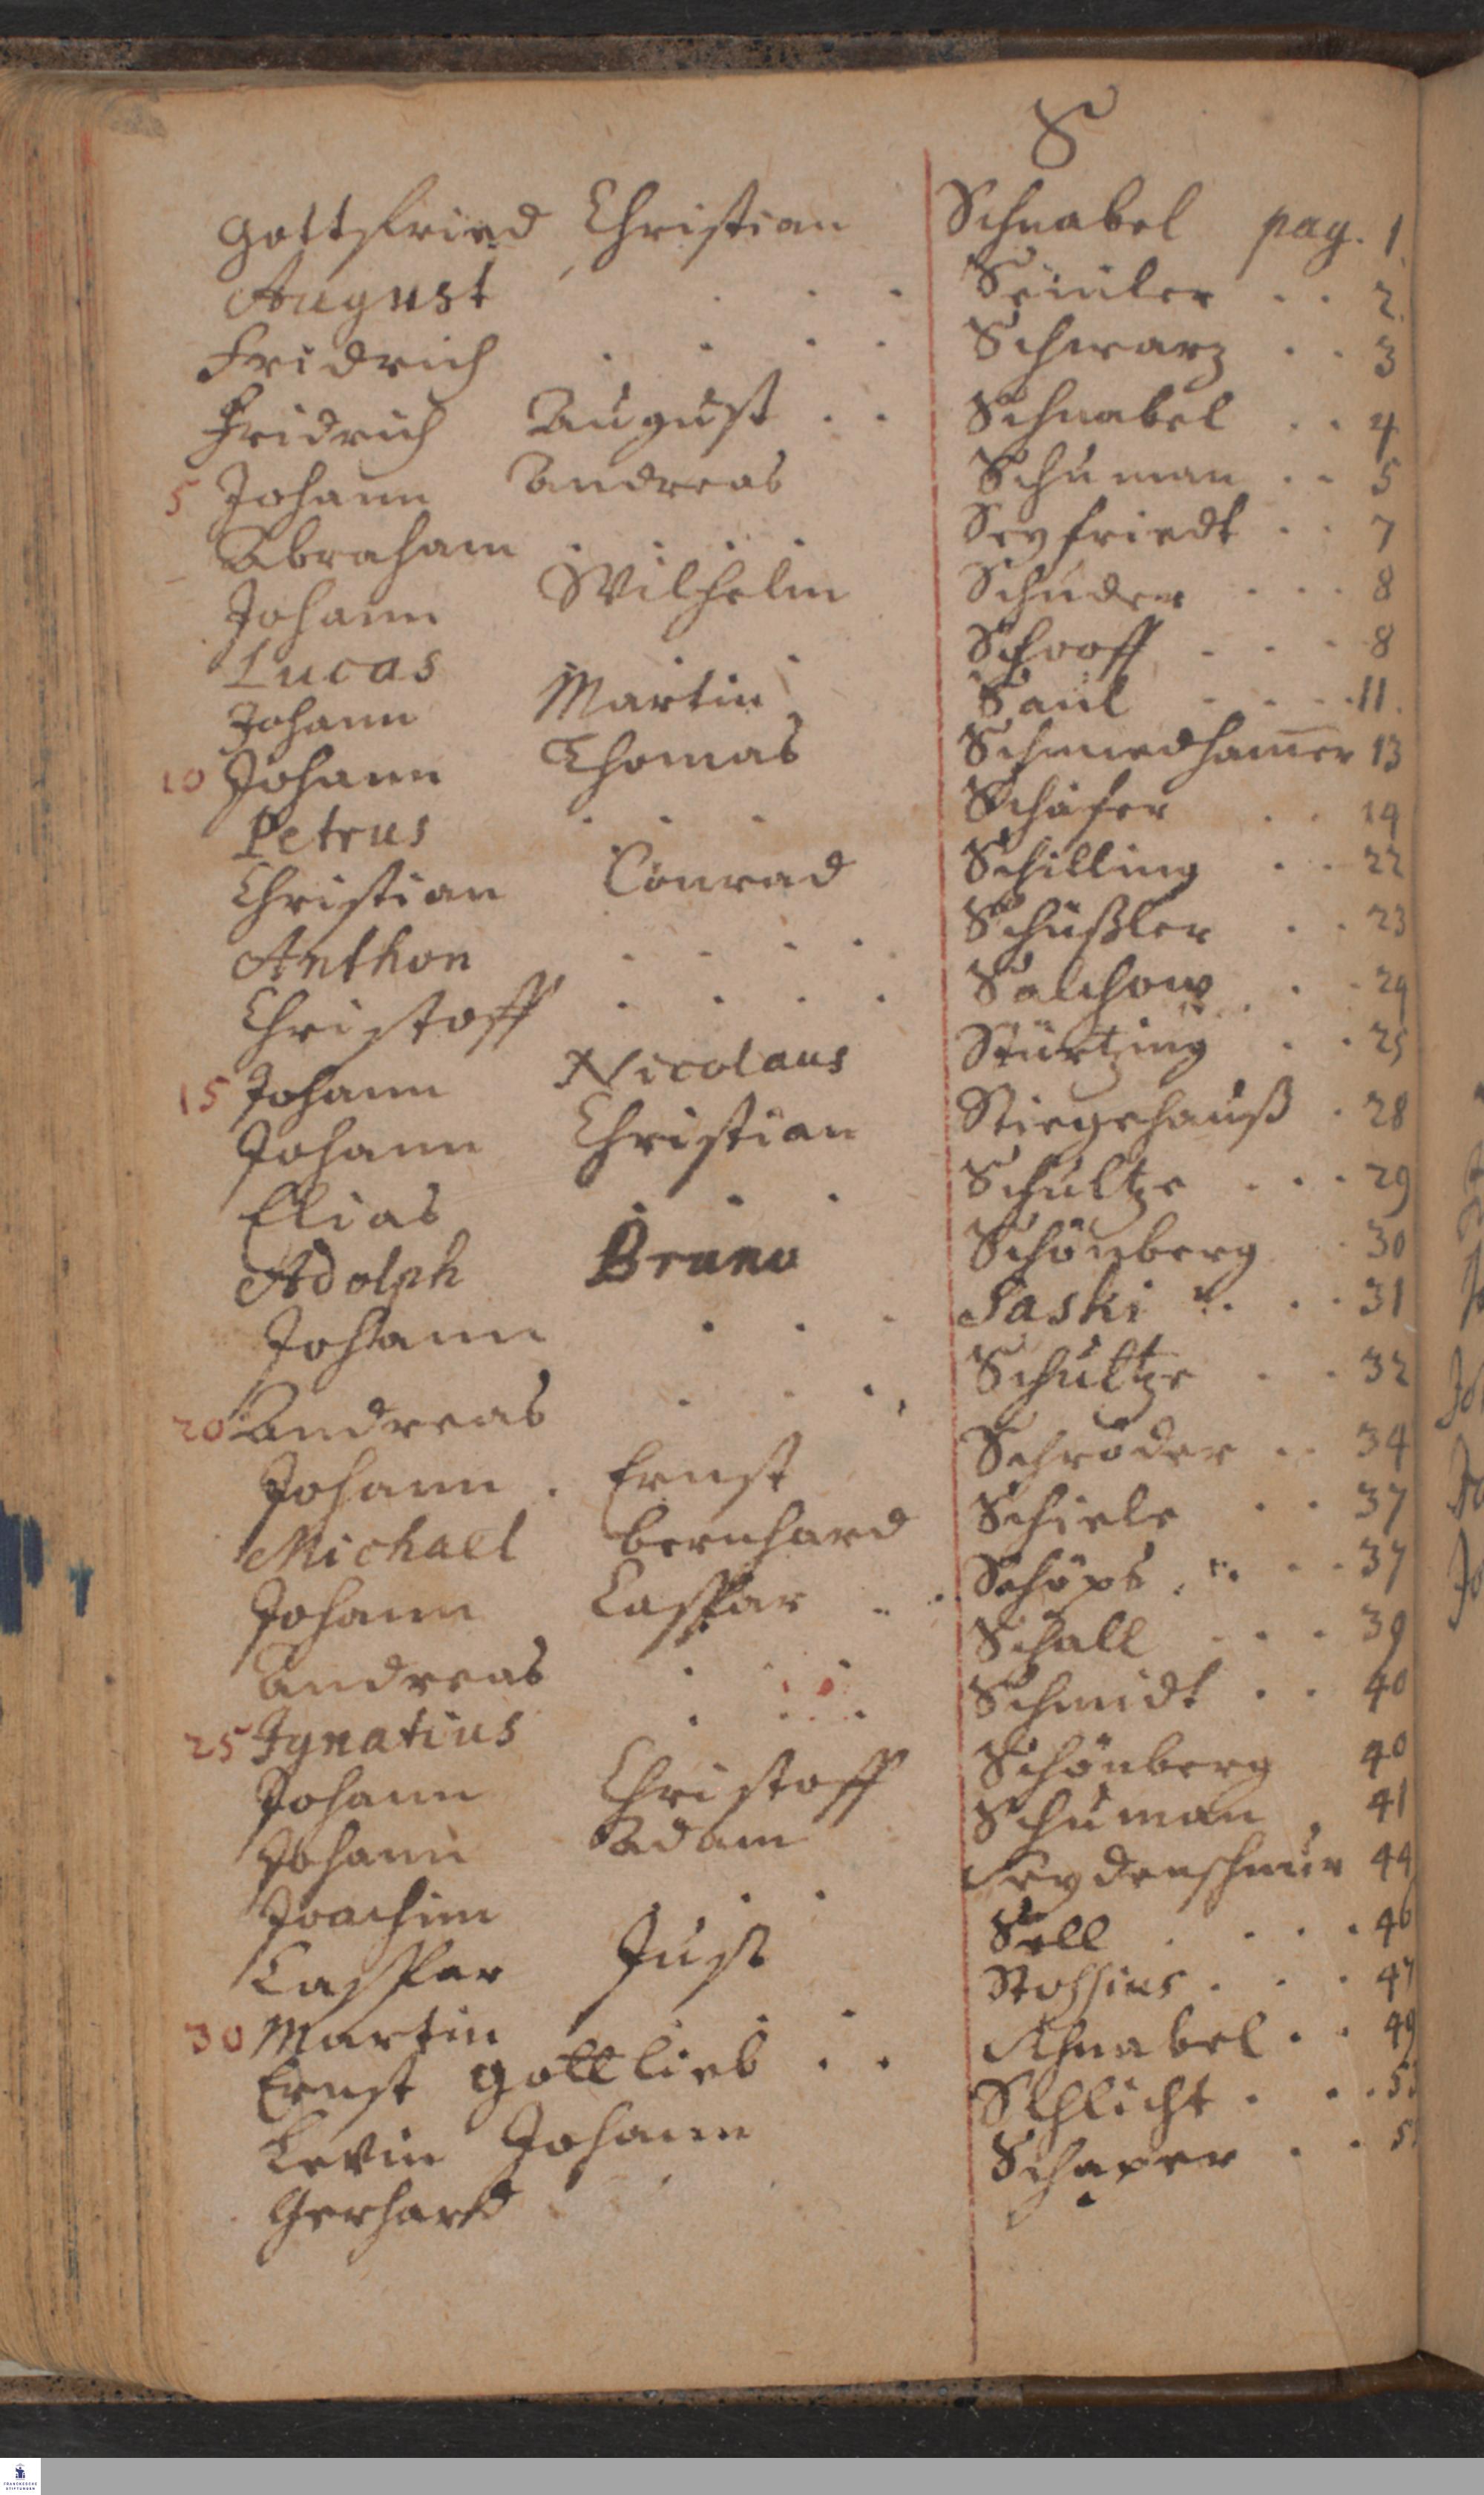 S
Gottfried Christian Schnabel pag. 1.
August . . . Semler . . 2.
Fridrich . . . . Schwarz . . 3
Fridrich August . . Schnabel . . 4
5 Johann Andreas Schuman . . 5
Abraham . . . . Seyfriedt . . 7
Johann Wilhelm Schuder . . . 8
Lucas Schroff . . . 8
Johann Martin Saul . . . . 11.
10 Johann Thomas Schmiedham̄er 13
Petrus . . . Schäfer . . 14
Christian Conrad Schilling . . 22
Anthon . . . . Schüßler . . 23
Christoff . . . . Salchow . . 24
15 Johann Nicolaus Stürtzing . . 25
Johann Christian Stiegehauß . 28
Elias . . . Schultze . . . 29
Adolph Bruno Schönberg . 30
Johann . . . Saski . . . 31
20 Andreas . . . . Schultze . . 32
Johann . Ernst Schröder . . 34
Michael Bernhard Schiele . . 37
Johann Casspar . . Schöps . . . 37
Andreas . . . Schall . . . 39
25 Ignatius . . . . Schmidt . . 40
Johann Christoff Schönberg 40
Johann Adam Schuman . 41
Joachim . . Seydenschnur 44
Casspar Just Sell . . . . 46
30 Martin . . Stossius . . . 47
Ernst Gottlieb . . Schnabel . . 49
Levin Johann Schlicht . . .
Gerhard Schaper . .
FRANCKESCHE STIFTUNGEN